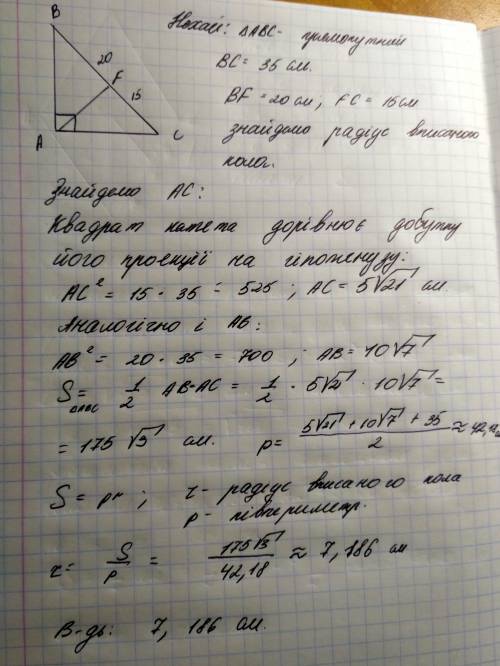 B
Нехай: △ABC - прямокутний
20
F
BC = 35 см.
15
BF = 20 см; FC = 15 см
A
C
знайдемо радіус вписаного
кола.
Знайдемо AC:
Квадрат катета дорівнює добутку
його проекції на гіпотенузу:
AC² = 15 · 35 = 525 ; AC = 5√21 см.
Аналогічно і AB:
AB² = 20 · 35 = 700 ; AB = 10√7
S△ABC = 1/2 AB·AC = 1/2 · 5√21 · 10√7 =
= 175 √3 см. p = (5√21 + 10√7 + 35)/2 ≈ 42,18
S = pr ; r - радіус вписаного кола
p - півпериметр.
r = S/p = 175√3/42,18 ≈ 7,186 см
В-дь: 7,186 см.